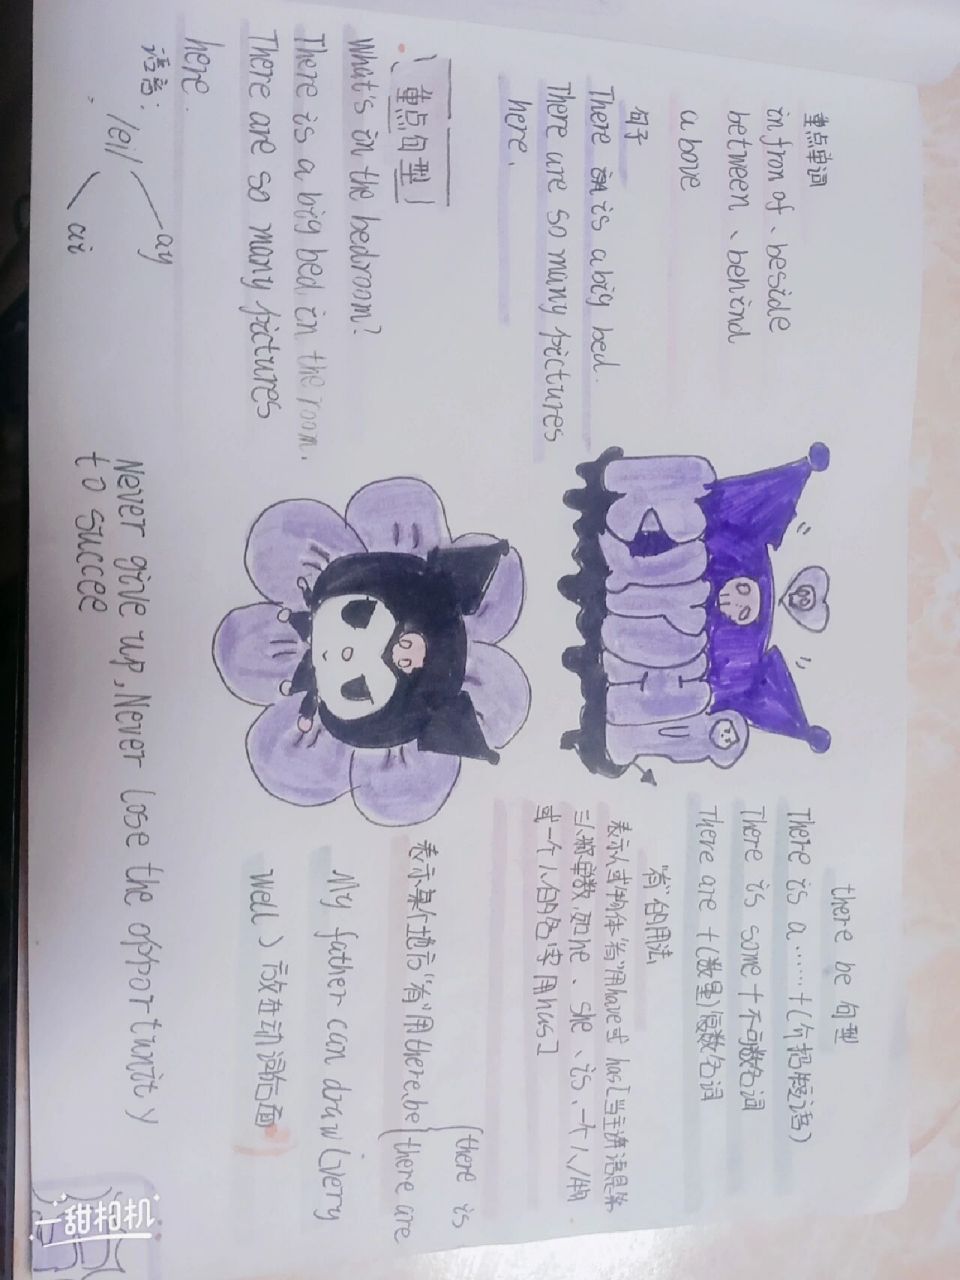 重点单词
in from of、beside
between、behind
above
句子
There is a big bed.
There are so many pictures
here.
重点句型
What's in the bedroom?
There is a big bed in the room.
There are so many pictures
here.
语音:/ei/
ay
ai
Never give up, Never lose the opportunity
to succee
there be 句型
There is a……+(介词短语)
There is some +不可数名词
There are +(数量)复数名词
"有"的用法
表示人或物体"有"用have或 has[当主语是第
三人称单数,如he、she、is、一个人/物
或一个人的名字用has]
表示某个地方"有"用there be
there is
there are
My father can draw (very
well) 放在动词后面
一甜相机